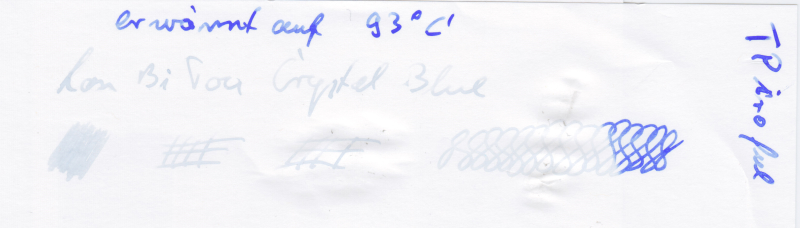 erwärmt auf 93°C
Kon Bi Tou Crystal Blue
TP iroful